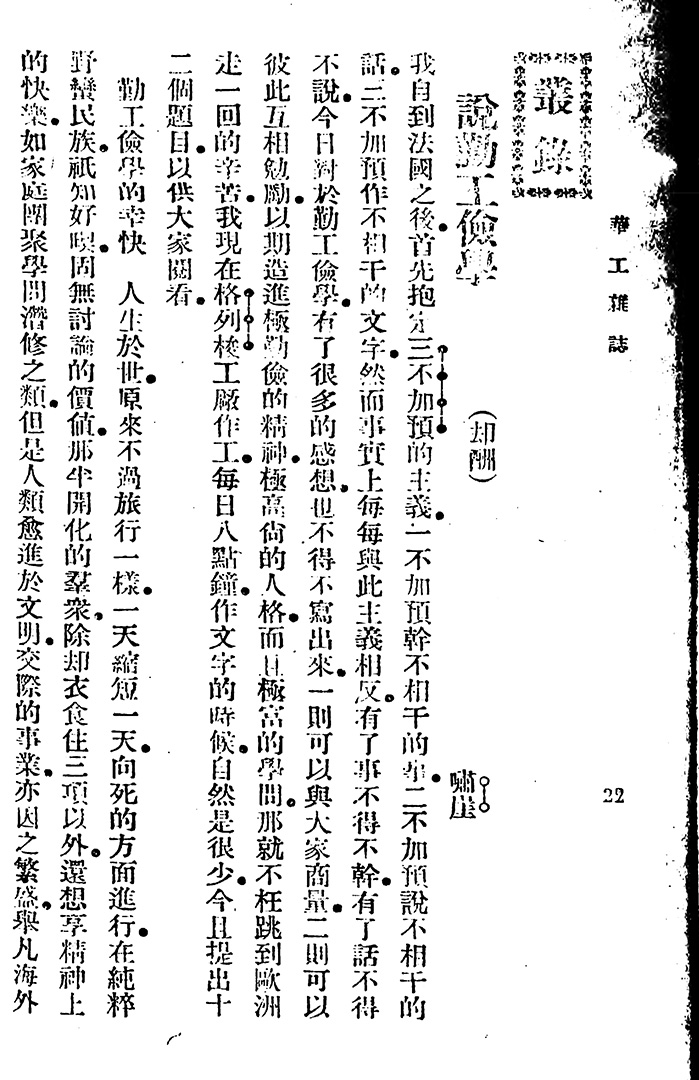 華工雜誌
22
叢錄
說勤工儉學
(却酬)
嘯崖
我自到法國之後首先抱定三不加預的主義一不加預幹不相干的事二不加預說不相干的
話三不加預作不相干的文字然而事實上每每與此主義相反有了事不得不幹有了話不得
不說今日對於勤工儉學有了很多的感想也不得不寫出來一則可以與大家商量二則可以
彼此互相勉勵以期造進極勤儉的精神極高尙的人格而且極富的學問那就不枉跳到歐洲
走一回的辛苦我現在格列梭工廠作工每日八點鐘作文字的時候自然是很少今且提出十
二個題目以供大家閱看
勤工儉學的幸快 人生於世原來不過旅行一樣一天縮短一天向死的方面進行在純粹
野蠻民族祇知好喫固無討論的價値那半開化的羣衆除却衣食住三項以外還想享精神上
的快樂如家庭團聚學問潛修之類但是人類愈進於文明交際的事業亦因之繁盛舉凡海外